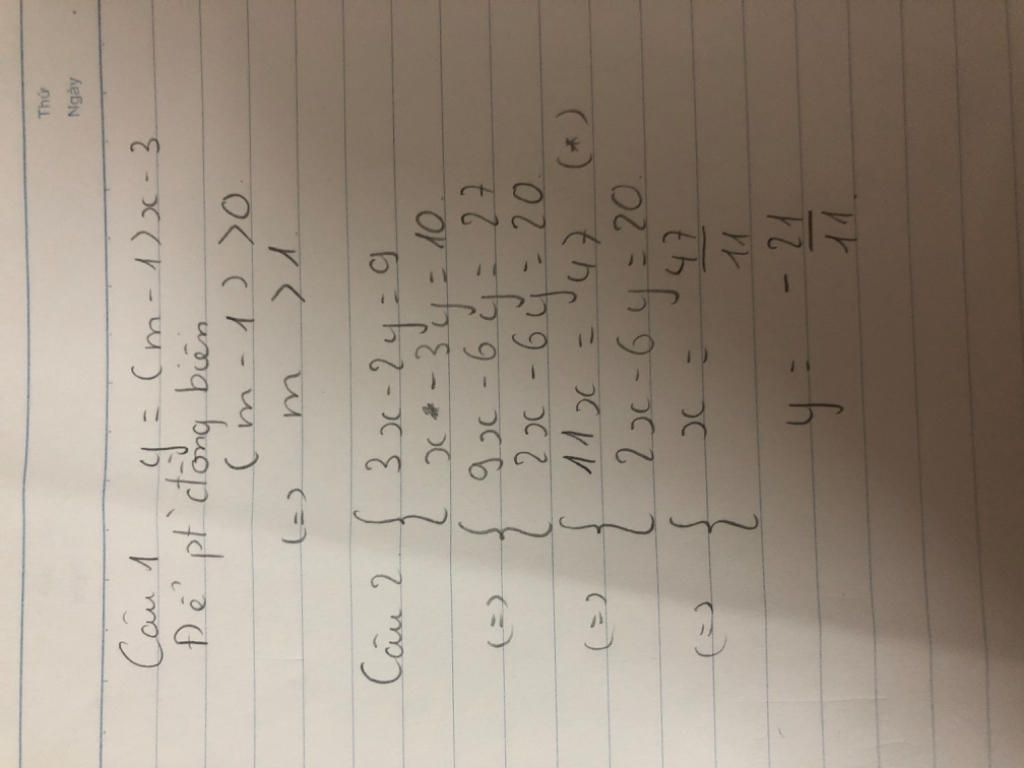 Thứ
Ngày
Câu 1 y = (m - 1)x - 3
Để pt đồng biến
(m - 1) > 0
(=) m > 1
Câu 2 { 3x - 2y = 9
x - 3y = 10
(=) { 9x - 6y = 27
2x - 6y = 20
(=) { 11x = 47 (*)
2x - 6y = 20
(=) { x = 47/11
y = - 21/11